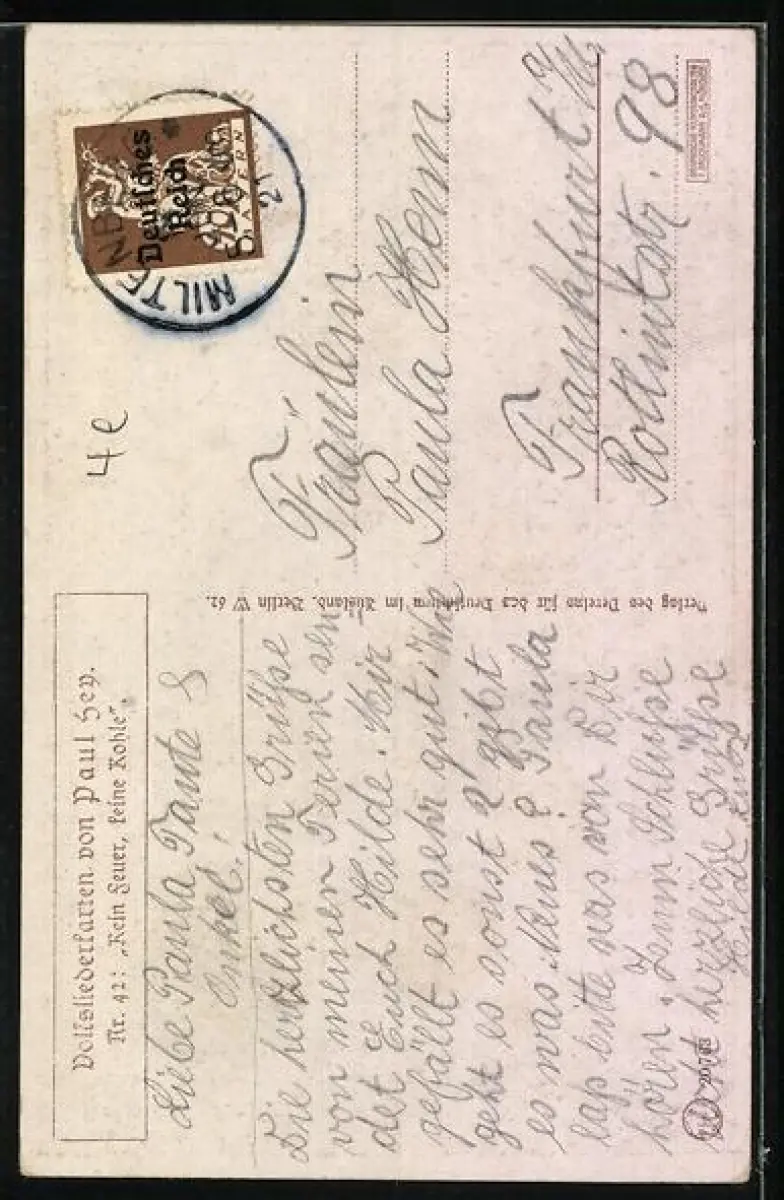 Volksliederkarten von Paul Hey.
Nr. 42: „Kein Feuer, keine Kohle“.
Liebe Paula, Tante &
Onkel!
Die herzlichsten Grüße
von meinen Ferien sen-
det Euch Hilde. Mir
gefällt es sehr gut. Wie
geht es sonst? gibt
es was Neues? Paula
laß bitte was von Dir
hören. Zum Schluße
herzliche Grüße
Verlag des Vereins für das Deutschtum im Ausland, Berlin W 62.
4 e
Deutsches
Reich
BAYERN
MILTENB
21
Fräulein
Paula Henn
Frankfurt M.
98